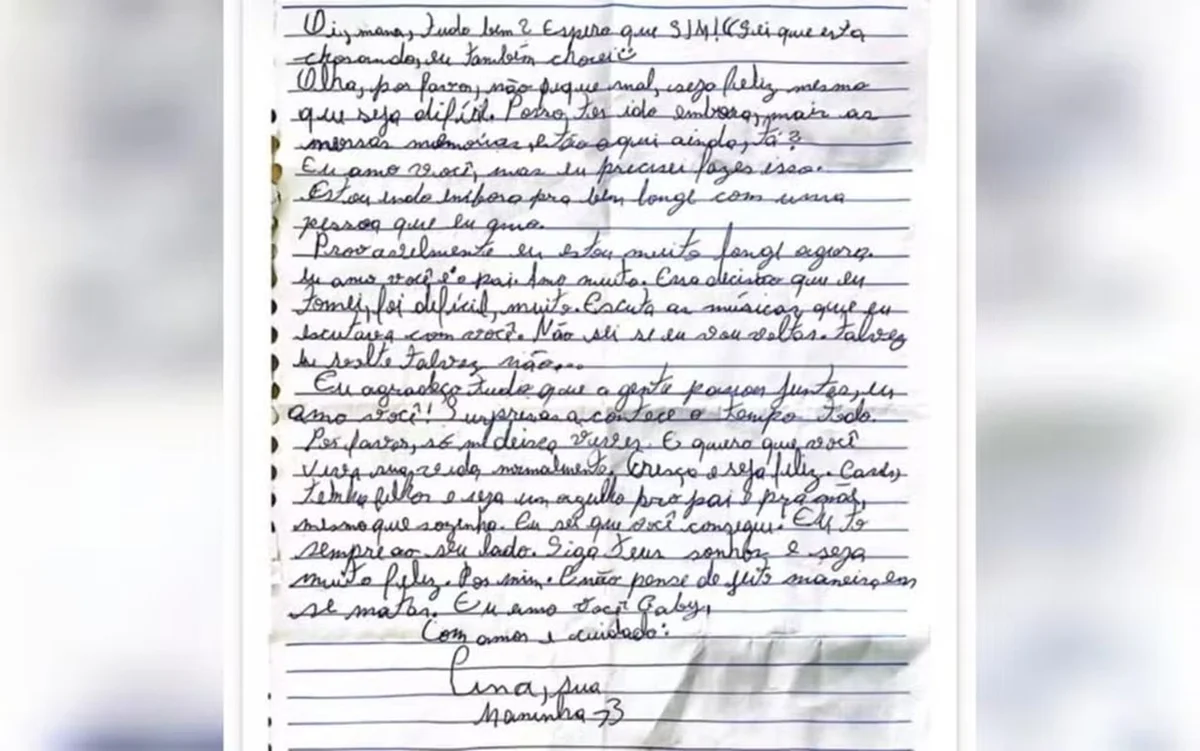 Oi, mana, tudo bem? Espero que SIM! (Sei que esta
chorando, eu também chorei
Olha, por favor, não fique mal, seja feliz mesmo
que seja difícil. Posso ter ido embora, mais as
nossas memórias, estão aqui ainda, tá?
Eu amo você, mas eu precisei fazer isso.
Estou indo embora pra bem longe com uma
pessoa que eu amo.
Provavelmente eu estou muito longe agora.
Eu amo você e o pai. Amo muito. Essa decisão que eu
tomei, foi defícil, muito. Escuta as músicas que eu
escutava com você. Não sei se eu vou voltar. talvez
eu volte talvez não...
Eu agradeço tudo que a gente passou juntas, eu
amo você! Surpresas acontece o tempo todo.
Por favor, só me deixa viver. E quero que você
viva sua vida normalmente. Cresça e seja feliz. Case,
tenha filhos e seja um orgulho pro pai e pra mãe,
mesmo que sozinha. Eu sei que você consegui. Eu to
sempre ao seu lado. Siga teus sonhos e seja
muito feliz. Por mim. E não pense de jeito maneira, em
se matar. Eu amo você Gaby,
Com amor e cuidado:
sua
Maninha <3